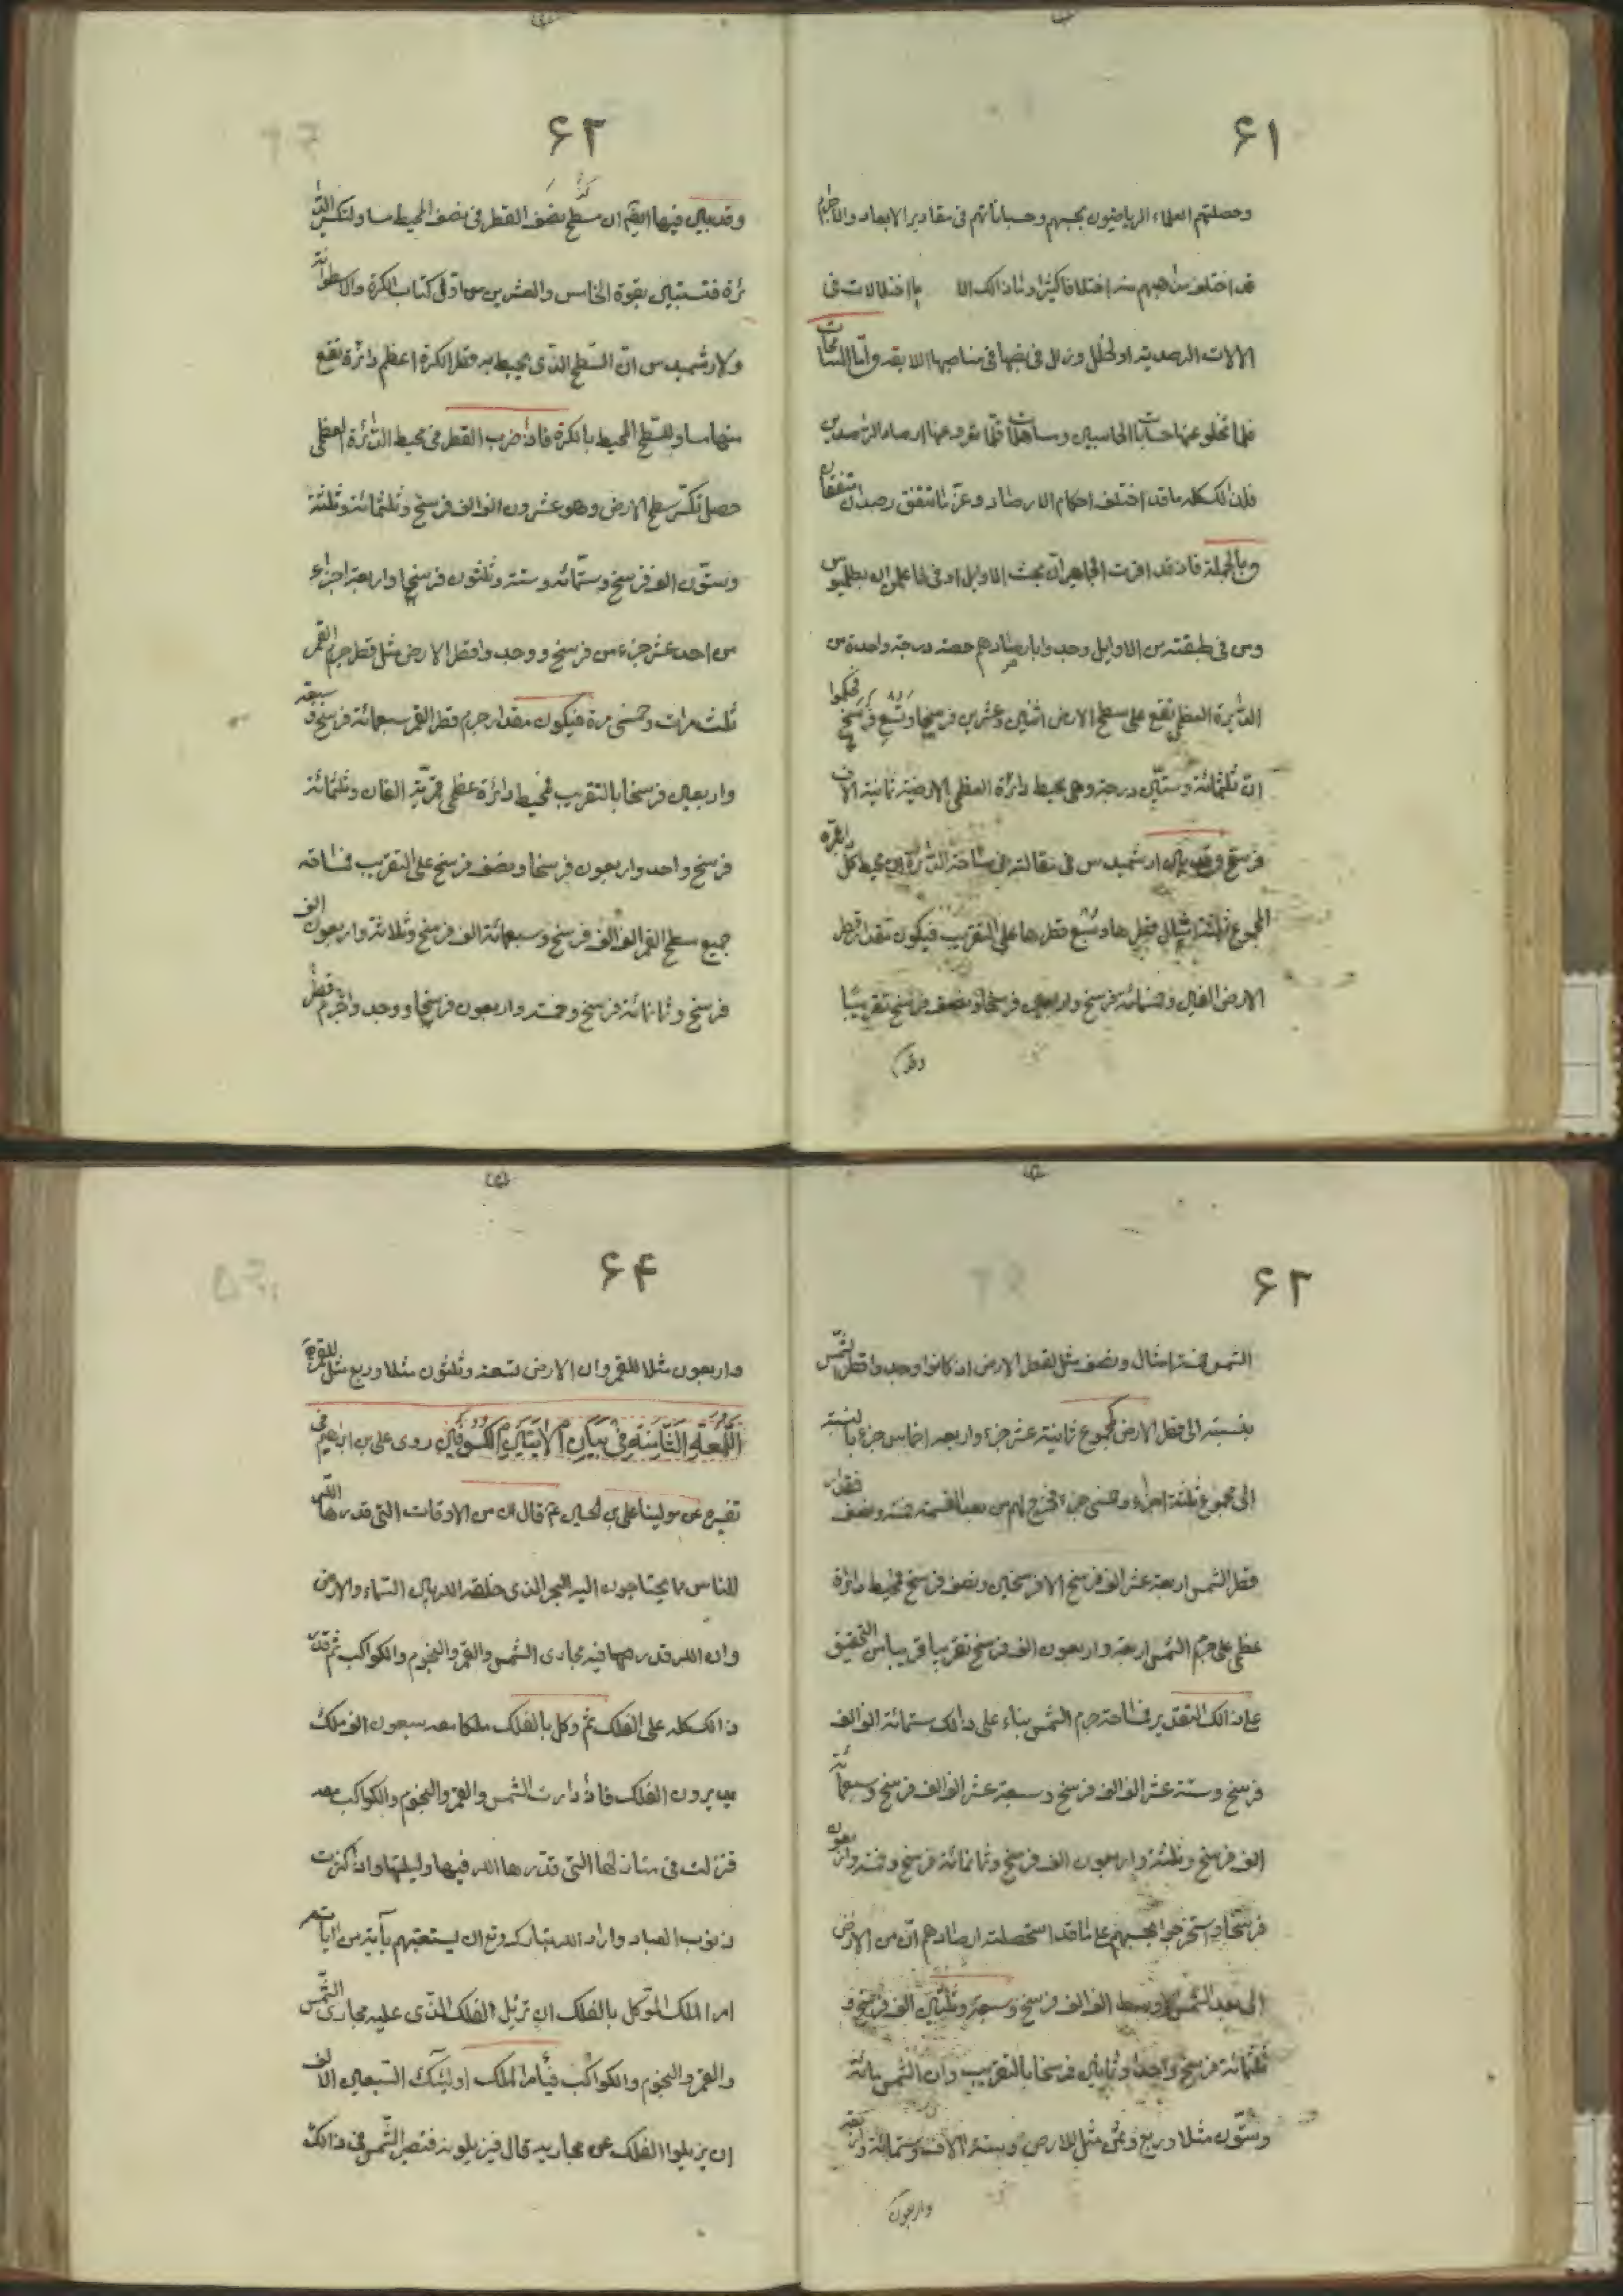 ۶۱
وحصلتهم العلماء الرياضيون بحجبهم وحساباتهم فى مقادير الابعاد والاجرام
قد اختلف مذاهبهم منه اختلافا كثيرا وما ذالك الا لاختلالات فى
الالات الرصدية او لخلل وزلل فى نصبها فى مناصبها اللايقه واما المسامحات
فلما تخلو عنها حسابات الحاسبين ومساهلات قلما تعرو عنها ارصاد الراصدين
فلذالك كله ما قد اختلف احكام الارصاد وعز ما تتفق رصدان متفقان
وبالجملة فاذ قد اقرت الجماهير ان بحث الاوايل اوفى فاعلمن ان بطلميوس
ومن فى طبقته من الاوايل وجدوا بارصادهم حصه درجة واحدة من
الدائرة العظمى تقع على سطح الارض اثنين وعشرين فرسخا وتسع فرسخ فحكموا
ان ثلثمائة وستين درجة وهى محيط دائرة العظمى الارضية ثمانية الاف
فرسخ وقد بين ارشميدس فى مقالته فى مساحة الدائرة ان محيط كل دائرة
لمجموع ثلثة امثال قطرها وسبع قطرها على التقريب فيكون مقدار قطر
الارض الفين وخمسائة فرسخ واربعين فرسخا ونصف فرسخ تقريبا
وقد
۶۲
وقد بين فيها ايضا ان سطح نصف القطر فى نصف المحيط مساو لتكسير الدا
ئرة فتستبين بقوة الخامس والعشرين من اولى كتاب الكرة والاسطوانة
ولارشميدس ان السطح الذى يحيط به قطر الكرة اعظم دائرة تقع
منها مساو للسطح المحيط بالكرة فاذا ضرب القطر فى محيط الدائرة العظمى
حصل تكسر سطح الارض وهو عشرون الف الف فرسخ وثلثمائة وثلثة
وستون الف فرسخ وستمائه وستة وثلثون فرسخا واربعة اجزاء
من احد عشر جزء من فرسخ ووجدوا قطر الارض مثل قطر جرم القمر
ثلث مرات وخمسى مرة فيكون مقدار جرم قطر القمر سبعمائة فرسخ و سبعة
واربعين فرسخا بالتقريب فمحيط دائرة عظمى قمرية الفان وثلثمائة
فرسخ واحد واربعون فرسخا ونصف فرسخ على التقريب فمساحة
جميع سطح القمر الف الف فرسخ وسبعمائة الف فرسخ وثلاثة واربعون الف
فرسخ وثمانمائة فرسخ وخمسة واربعون فرسخا ووجدوا جرم قطر
۶۳
الشمس خمسة امثال ونصف مثل لقطر الارض اذ كانوا وجدوا قطر الشمس
بنسبته الى قطر الارض كمجموع ثمانية عشر جزء واربعه اخماس جزء بالنسبة
الى مجموع ثلثة اجزاء وخمسى جزء فخرج لهم من بعد القسمة خمسة ونصف فقطر
قطر الشمس اربعة عشر الف فرسخ الا فرسخين ونصف فرسخ فمحيط دائرة
عظمى على جرم الشمس اربعة واربعون الف فرسخ تقريبا قريبا من التحقيق
على ذالك التقدير فمساحة جرم الشمس بناء على ذالك ستمائة الف الف
فرسخ وستة عشر الف الف فرسخ وسبعة عشر الف الف فرسخ وسبعمائة
الف فرسخ وثلثة واربعون الف فرسخ وثمانمائة فرسخ وخمسة واربعون
فرسخا واستخرجوا بحجبهم على ما قد استحصلته ارصادهم ان من الارض
الى بعد الشمس الاوسط الف الف فرسخ وسبعة وثلثين الف فرسخ و
ثلثمائة فرسخ واحدا وثمانين فرسخا بالتقريب وان الشمس مائة
وستون مثلا وربع وثمن مثل للارض وستة الاف وستمائة واربعة
واربعون
۶۴
واربعون مثلا للقمر وان الارض تسعة وثلثون مثلا وربع مثل للقمر
اللمعة الثامنة فى بيان الايتين الكسوفين روى على بن ابراهيم فى
تفسيره عن مولينا على بن الحسين ع قال ان من الاوقات التى قدرها الله
للناس مما يحتاجون اليه البحر الذى خلقه الله بين السماء والارض
وان الله قدر منها فيه مجارى الشمس والقمر والنجوم والكواكب ثم قدر
ذالك كله على الفلك ثم وكل بالفلك ملكا معه سبعون الف ملك
يديرون الفلك فاذا دارت الشمس والقمر والنجوم والكواكب معه
فنزلت فى منازلها التى قدرها الله فيها وليلتها واذا كثرت
ذنوب العباد واراد الله تبارك وتع ان يستعتبهم بآية من اياته
امر الملك الموكل بالفلك ان تزيل الفلك الذى عليه مجارى الشمس
والقمر والنجوم والكواكب فيأمر الملك اولئك السبعين الالف
ان يزيلوا الفلك عن مجاريه قال فيزيلونه فتصير الشمس فى ذالك